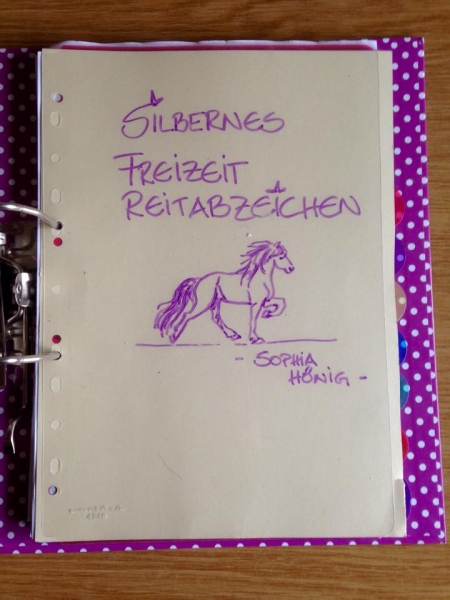 SILBERNES
FREIZEIT
REITABZEICHEN
- SOPHIA
HÖNIG -